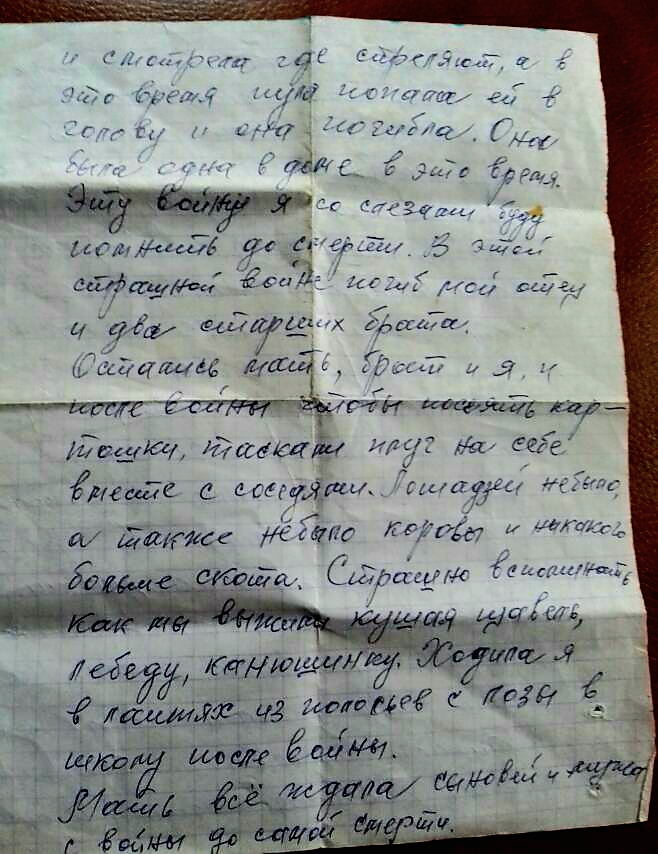 и смотрела где стреляют, а в
это время пуля попала ей в
голову и она погибла. Она
была одна в доме в это время.
Эту войну я со слезами буду
помнить до смерти. В этой
страшной войне погиб мой отец
и два старших брата.
Остались мать, брат и я, и
после войны чтобы посеять кар-
тошку, таскали плуг на себе
вместе с соседями. Лошадзей небыло,
а также небыло коровы и никакого
больше скота. Страшно вспоминать
как мы выжили кушая щавель,
лебеду, канюшинку. Ходила я
в лаптях из полосьев с лозы в
школу после войны.
Мать всё ждала сыновей и мужа
с войны до самой смерти.